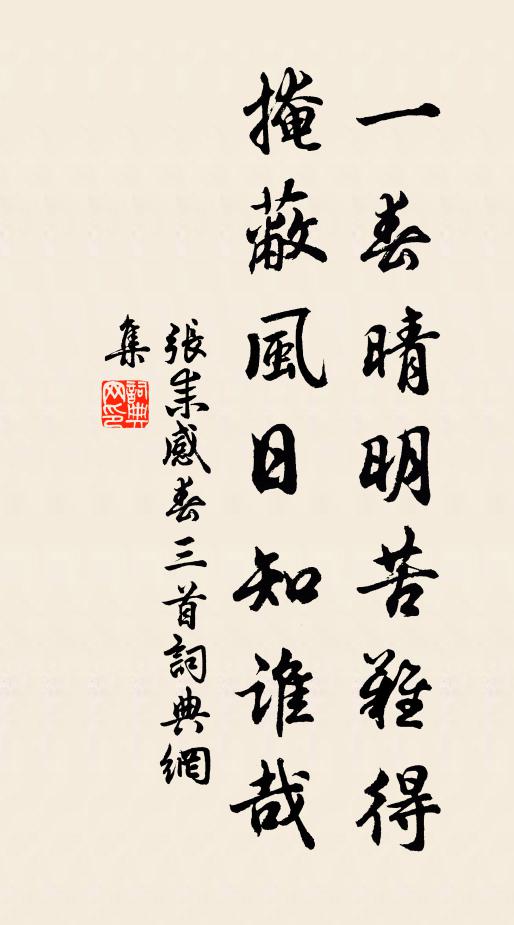 一春晴明苦難得
掩蔽風日知誰哉
張耒感春三首詞典網
集
詞典網印